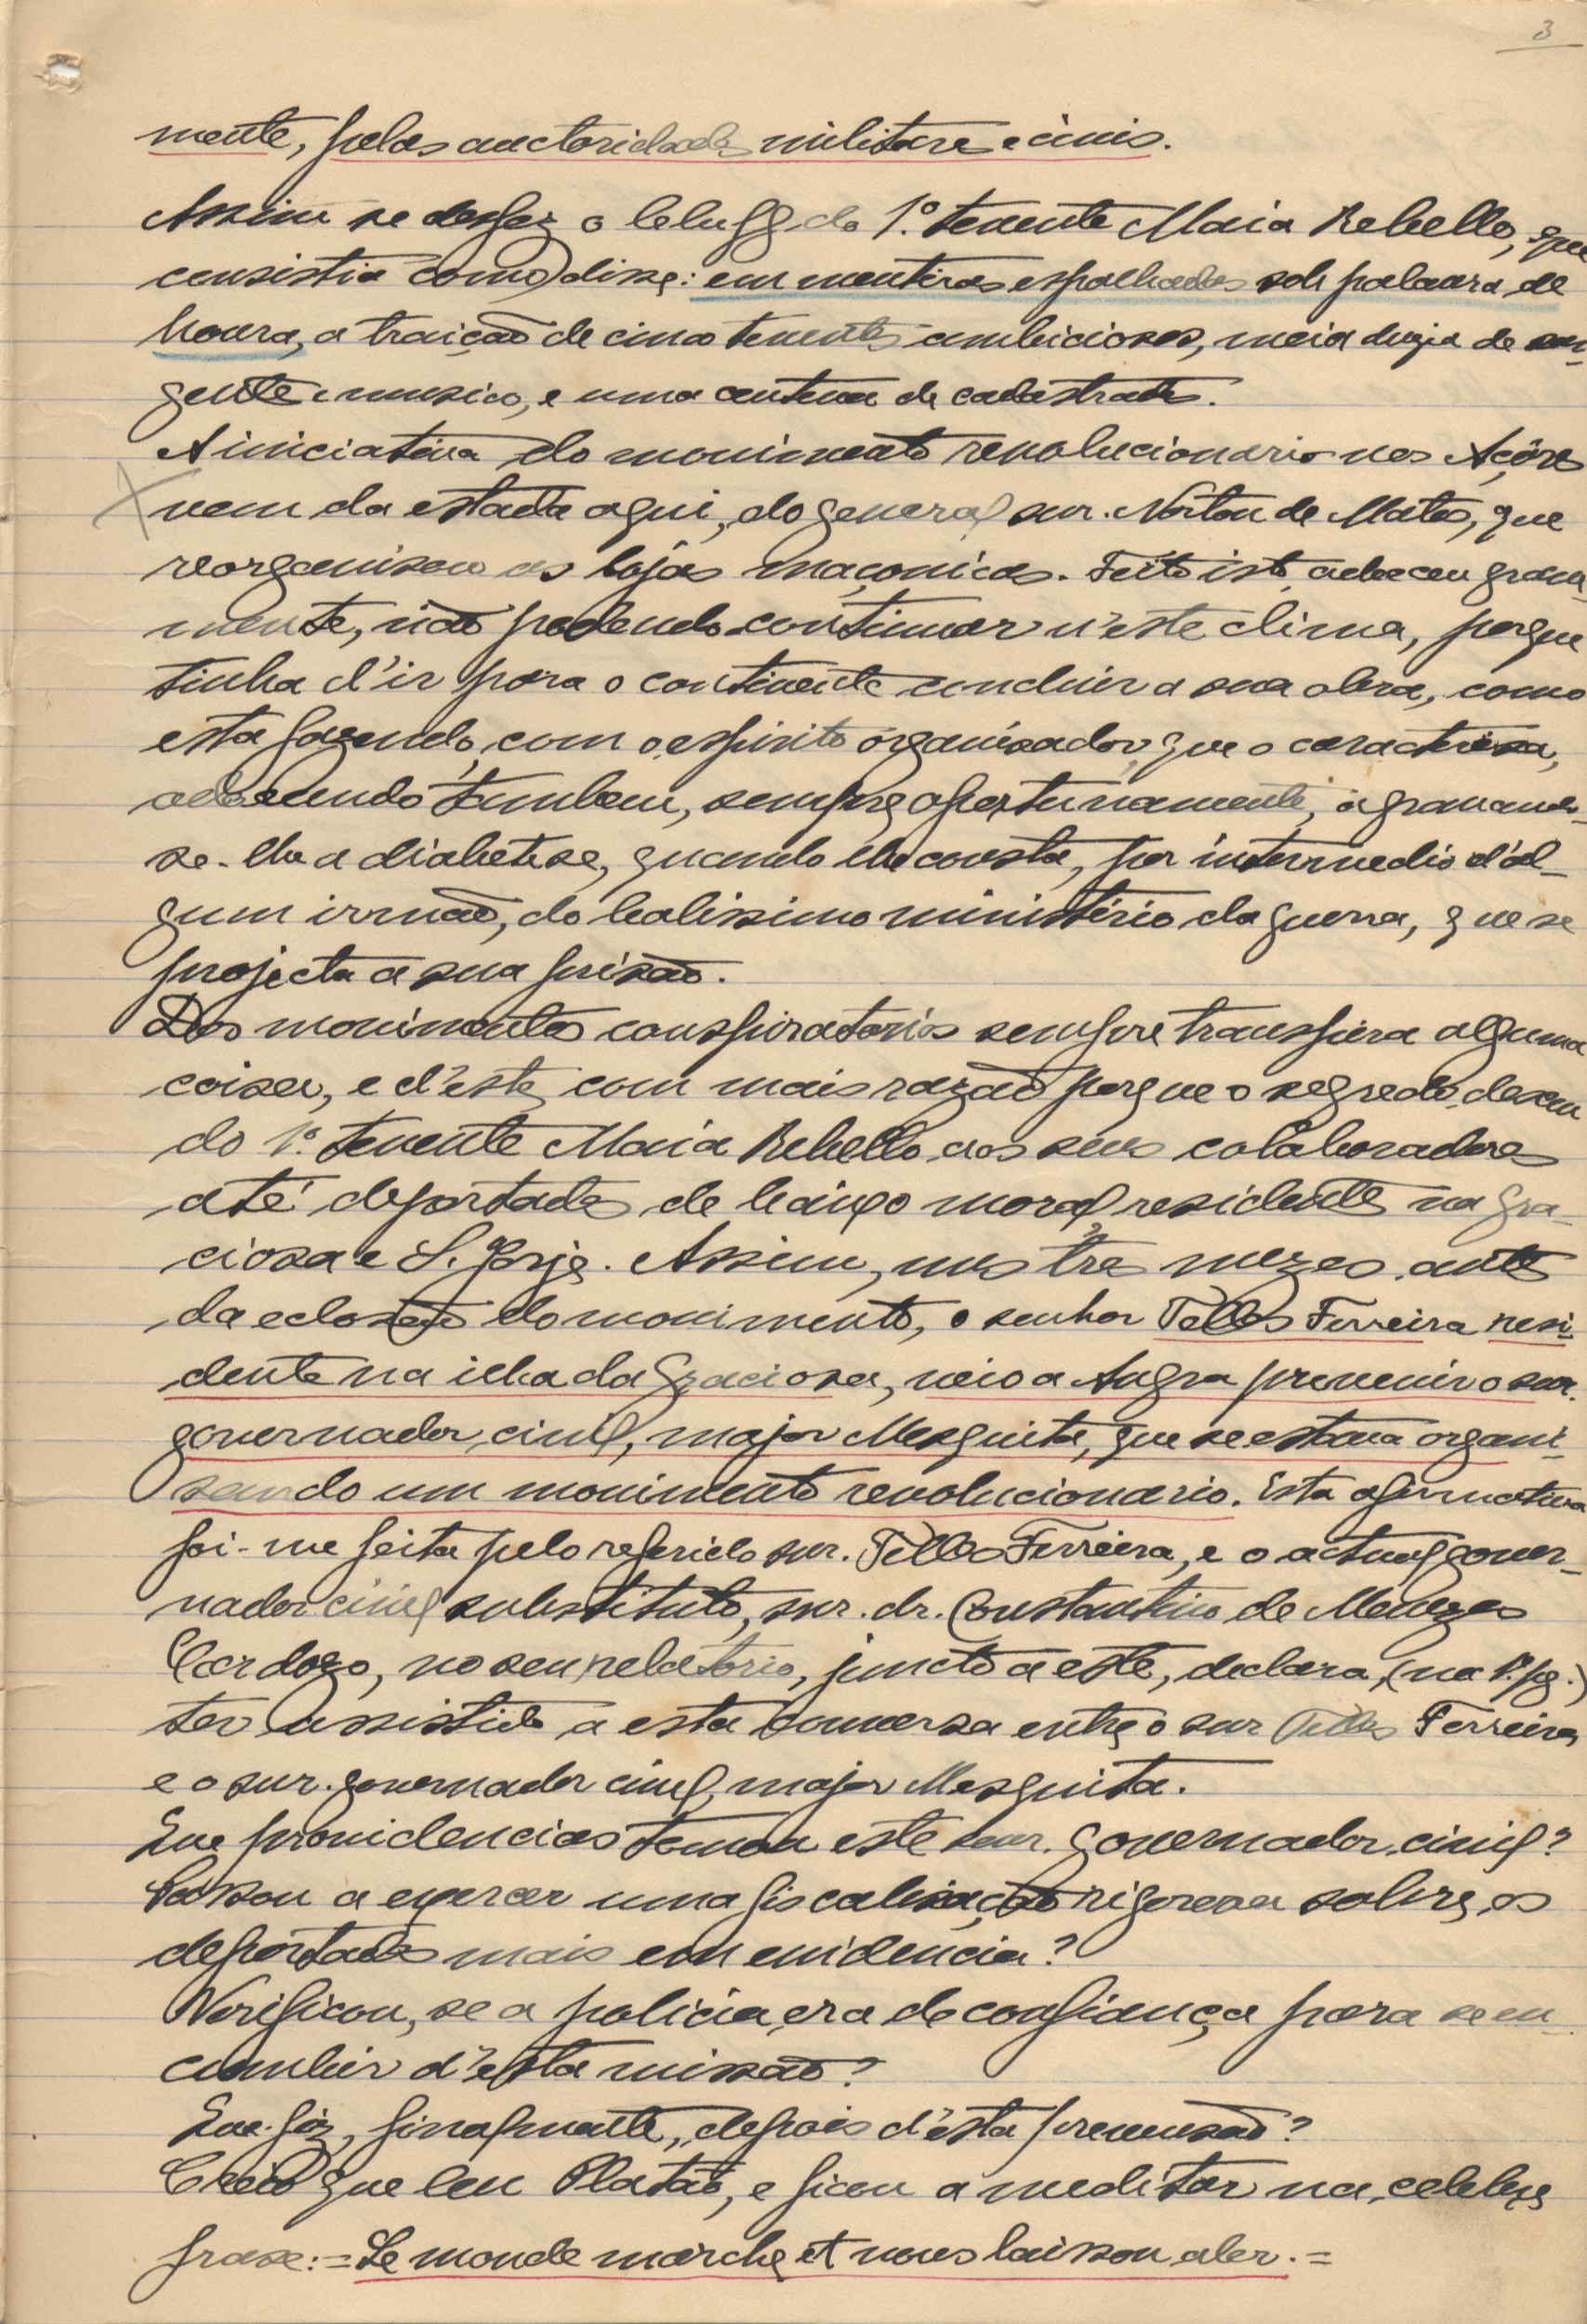 3
mente, pelas auctoridades militares e civis.
Assim se desfez o bluff do 1.º tenente Maia Rebello, que
consistia como disse: em mentiras espalhadas sob palavra de
honra, a traição de cinco tenentes ambiciosos, meia duzia de sar-
gentos e musico, e uma centena de cadastrados.
A iniciativa do movimento revolucionario nos Açôres
vem da estada aqui, do general snr. Norton de Matos, que
reorganisou as lojas maçonicas. Feito isto, adoeceu grave-
mente, não podendo continuar n'este clima, porque
tinha d'ir para o continente concluir a sua obra, como
esta fazendo, com o espirito organisador que o caracterisa,
adoecendo tambem, sempre oportunamente, agravando-
se-lhe a diabetese, quando lhe consta, por intermedio d'al-
gum irmão, do lealissimo ministério da guerra, que se
projecta a sua prisão.
Dos movimentos conspiratorios sempre transpira alguma
coisa, e d'este, com mais razão porque o segredo desceu
do 1.º tenente Maia Rebello aos seus colaboradores
até deportados de baixo moral residentes na Gra-
ciosa e S. Jorje. Assim, uns três mezes antes
da eclosão do movimento, o senhor Telles Ferreira resi-
dente na ilha da Graciosa, veio a Angra prevenir o snr.
governador civil, major Mesquita, que se estava organi-
sando um movimento revolucionario. Esta afirmativa
foi-me feita pelo referido snr. Telles Ferreira, e o actual gover-
nador civil substituto, snr. dr. Constantino de Menezes
Cardozo, no seu relatorio, juncto a este, declara, (na 1.ª pg.)
ter assistido a esta conversa entre o snr Telles Ferreira
e o snr. governador civil, major Mesquita.
Que providencias tomou este snr. governador civil?
Passou a exercer uma fiscalisação rigorosa sobre os
deportados mais em evidencia?
Verificou, se a policia era de confiança para se en-
cumbir d'esta missão?
Que fez, finalmente, depois d'esta prevensão?
Creio que leu Platão, e ficou a meditar na celebre
frase: = Le monde marche et nous laisson aler. =